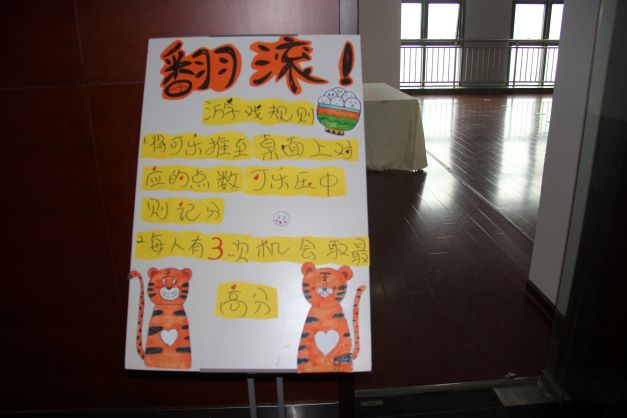 翻滚！
游戏规则
1.将可乐推至桌面上对
应的点数可乐压中
则记分
2.每人有3次机会.取最
高分